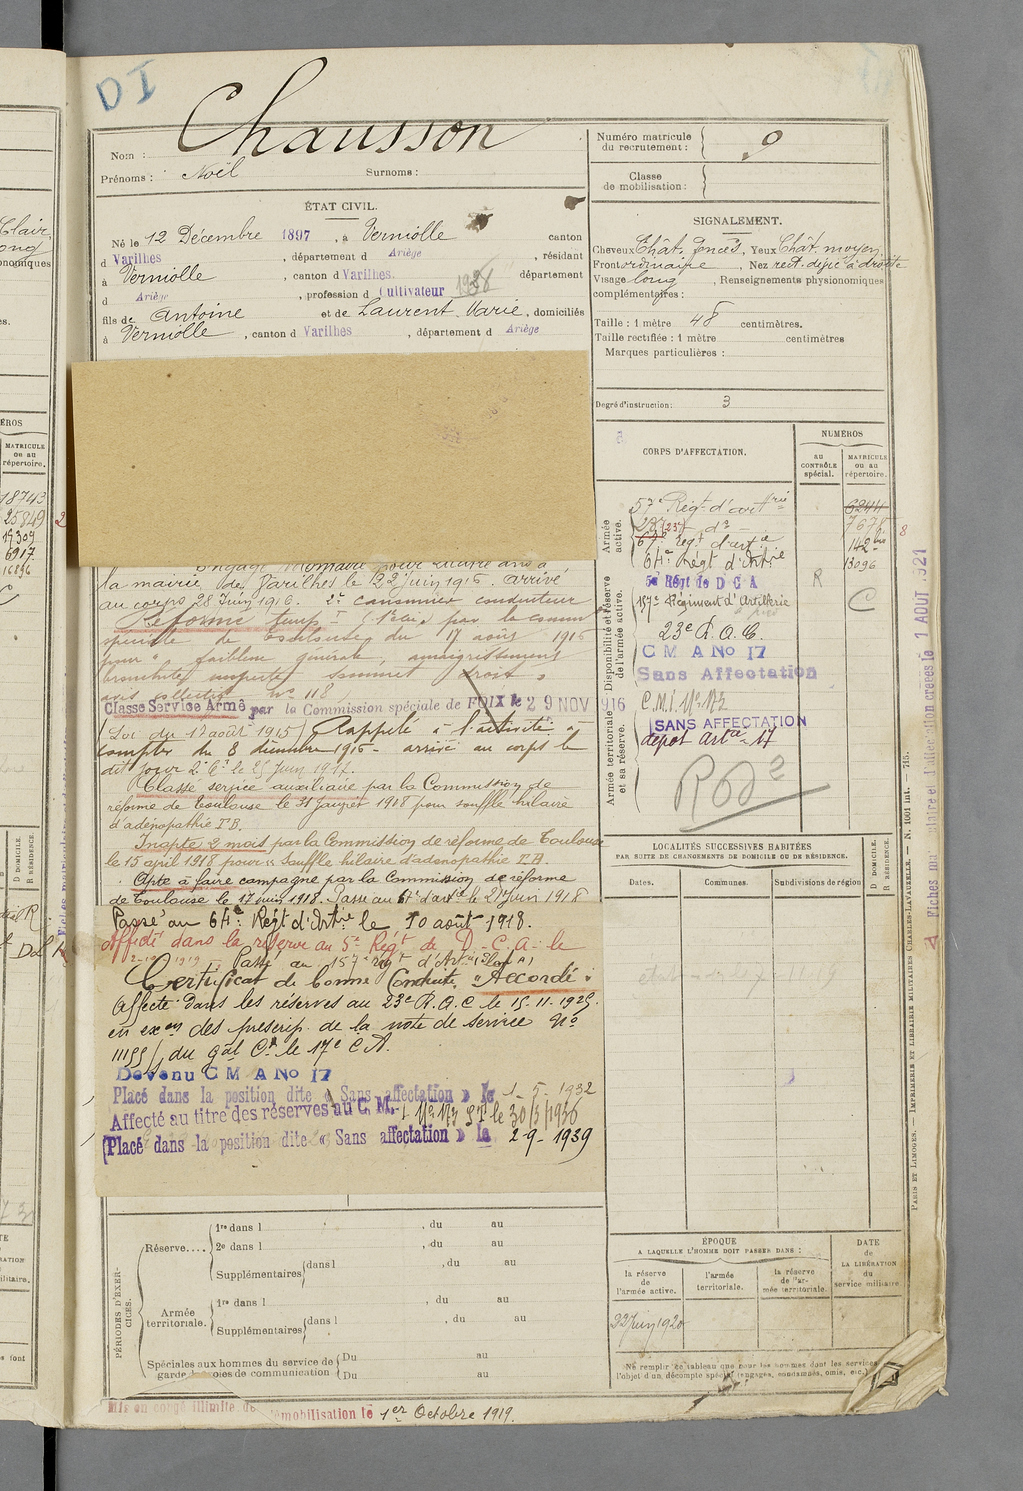 DI
Chausson
Nom :
Prénoms : Noël Surnoms :
Numéro matricule
du recrutement : 9
Classe
de mobilisation :
ÉTAT CIVIL.
Né le 12 Décembre 1897, à Verniolle canton
d Varilhes, département d Ariège, résidant
à Verniolle, canton d Varilhes. département
d Ariège, profession d Cultivateur
fils de Antoine et de Laurent Marie, domiciliés
à Verniolle, canton d Varilhes, département d Ariège
SIGNALEMENT.
Cheveux Chât. foncés, Yeux Chât. moyen
Front ordinaire, Nez rect. dévié à droite
Visage long, Renseignements physionomiques
complémentaires :
Taille : 1 mètre 48 centimètres.
Taille rectifiée : 1 mètre centimètres
Marques particulières :
Degré d'instruction : 3
CORPS D'AFFECTATION.
NUMÉROS
AU CONTRÔLE spécial.
MATRICULE ou au répertoire.
Armée active.
57e Régt d'artrie 6244
7678
67e Régt d'artie 142
64e Régt d'Artie 13096
Disponibilité et réserve de l'armée active.
5e Régt de D C A R
157e Régiment d'Artillerie C
23e R. A. C.
C M A No 17
Sans Affectation
Armée territoriale et sa réserve.
C.M.I. No 173
SANS AFFECTATION
dépôt Artie 17
Engagé Volontaire pour quatre ans à
la mairie de Varilhes le 22 Juin 1916. arrivé
au corps 28 Juin 1916. 2e canonnier conducteur
Réformé temp. par la comon
spéciale de Toulouse du 17 août 1916
pour " faiblesse générale, amaigrissement
bronchite suspecte sommet droit"
avis collectif no 118
Classé Service Armé par la Commission spéciale de FOIX le 29 NOV 1916
(Loi du 17 août 1915) Rappelé à l'activité à
compter du 8 décembre 1916 - arrivé au corps le
dit jour 2e Cr le 25 Juin 1917.
Classé service auxiliaire par la Commission de
réforme de Toulouse le 31 Janvier 1918 pour souffle hilaire
d'adénopathie T.B.
Inapte 2 mois par la Commission de réforme de Toulouse
le 15 avril 1918 pour « Souffle hilaire d'adénopathie T.B.
Apte à faire campagne par la Commission de réforme
de Toulouse le 17 Juin 1918. Passé au 67e d'artie le 27 Juin 1918
Passé au 64e Régt d'Artie le 10 août 1918.
Affecté dans la réserve au 5e Régt de D. C. A. le
Passé au 157e Régt d'Artie
Certificat de bonne Conduite "Accordé"
Affecté dans les réserves au 23e R.A.C le 15.11.1925.
en exon des prescrip. de la note de service No
du Gal Ct le 17e C.A.
Devenu C M A No 17
Placé dans la position dite « Sans affectation » le 1-5 1932
Affecté au titre des réserves au C. M. I No 173 le 30/3/1936
Placé dans la position dite « Sans affectation » le 2-9-1939
LOCALITÉS SUCCESSIVES HABITÉES
PAR SUITE DE CHANGEMENTS DE DOMICILE OU DE RÉSIDENCE.
Dates. Communes. Subdivisions de région
D DOMICILE. R RÉSIDENCE.
PÉRIODES D'EXERCICES.
Réserve.... 1re dans l , du au
2e dans l , du au
Supplémentaires dans l , du au
Armée territoriale. 1re dans l , du au
Supplémentaires dans l , du au
Spéciales aux hommes du service de Du au
garde des voies de communication Du au
ÉPOQUE
A LAQUELLE L'HOMME DOIT PASSER DANS :
la réserve de l'armée active.
l'armée territoriale.
la réserve de l'armée territoriale.
DATE de LA LIBÉRATION du service militaire.
22 Juin 1920
Ne remplir ce tableau que pour les hommes dont les services
l'objet d'un décompte spécial (engagés, condamnés, omis, etc.)
Mis en congé illimité de démobilisation le 1er Octobre 1919.
PARIS ET LIMOGES. — IMPRIMERIE ET LIBRAIRIE MILITAIRES CHARLES-LAVAUZELLE. — N. 1001 int. — 715.
18743
25849
19309
6917
16896